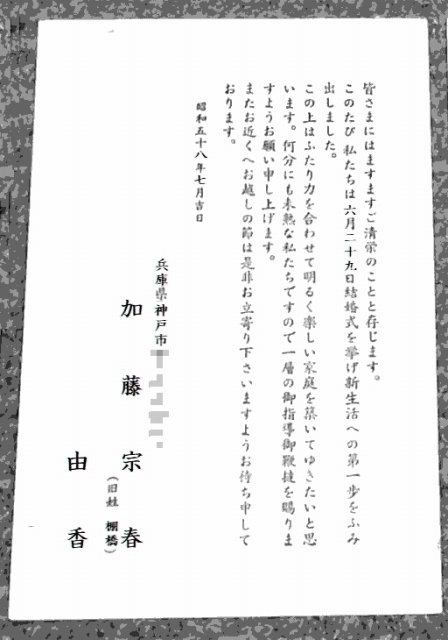 皆さまにはますますご清栄のことと存じます。
このたび 私たちは六月二十九日結婚式を挙げ新生活への第一歩をふみ
出しました。
この上はふたり力を合わせて明るく楽しい家庭を築いてゆきたいと思
います。何分にも未熟な私たちですので一層の御指導御鞭撻を賜りま
すようお願い申し上げます。
またお近くへお越しの節は是非お立寄り下さいますようお待ち申して
おります。
昭和五十八年七月吉日
兵庫県神戸市
加藤宗春
(旧姓 棚橋)
由香